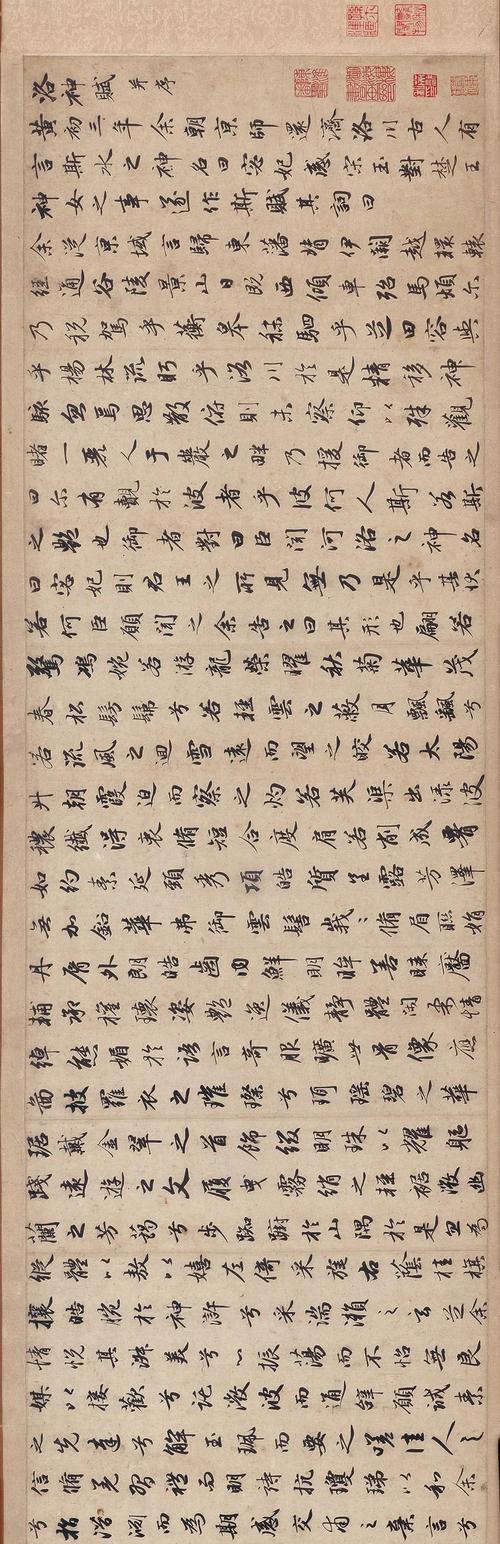 洛神賦 并序
黃初三年余朝京師還濟洛川古人有
言斯水之神名曰宓妃感宋玉對楚王
神女之事遂作斯賦其詞曰
余從京域言歸東藩背伊闕越轘轅
經通谷陵景山日既西傾車殆馬煩尒
乃税駕乎蘅皋秣駟乎芝田容與
乎楊林流眄乎洛川於是精移神
駭忽焉思散俯則未察仰以殊觀
睹一麗人于巖之畔乃援御者而告之
曰尒有覿於彼者乎彼何人斯若斯
之艷也御者對曰臣聞河洛之神名
曰宓妃則君王之所見無乃是乎其狀
若何臣願聞之余告之曰其形也翩若
驚鴻婉若游龍榮曜秋菊華茂
春松髣髴兮若輕雲之蔽月飄颻兮
若流風之迴雪遠而望之皎若太陽
升朝霞迫而察之灼若芙渠出淥波
穠纖得衷脩短合度肩若削成署
如約素延頸秀項皓質呈露芳澤
無加鉛華弗御雲髻峩〻脩眉聯娟
丹脣外朗皓齒内鮮明眸善睞靨
輔承權瓌姿艷逸儀靜體閑柔情
綽態媚於語言奇服曠世骨像應
圖披羅衣之璀璨兮珥瑶碧之華
琚戴金翠之首飾綴明珠以耀軀
踐遠遊之文履曳霧綃之輕裾微幽
蘭之芳藹兮步踟躕於山隅於是忽焉
縱體以敖以嬉左倚采旄右蔭桂旗
攘皓腕於神滸兮采湍瀨之玄芝余
情悅其淑美兮心振蕩而不怡無良
媒以接歡兮託微波而通辭願誠素
之先達兮解玉珮而要之嗟佳人之
信脩羌習禮而明詩抗瓊珶以和余
兮指潛淵而為期感交甫之棄言兮